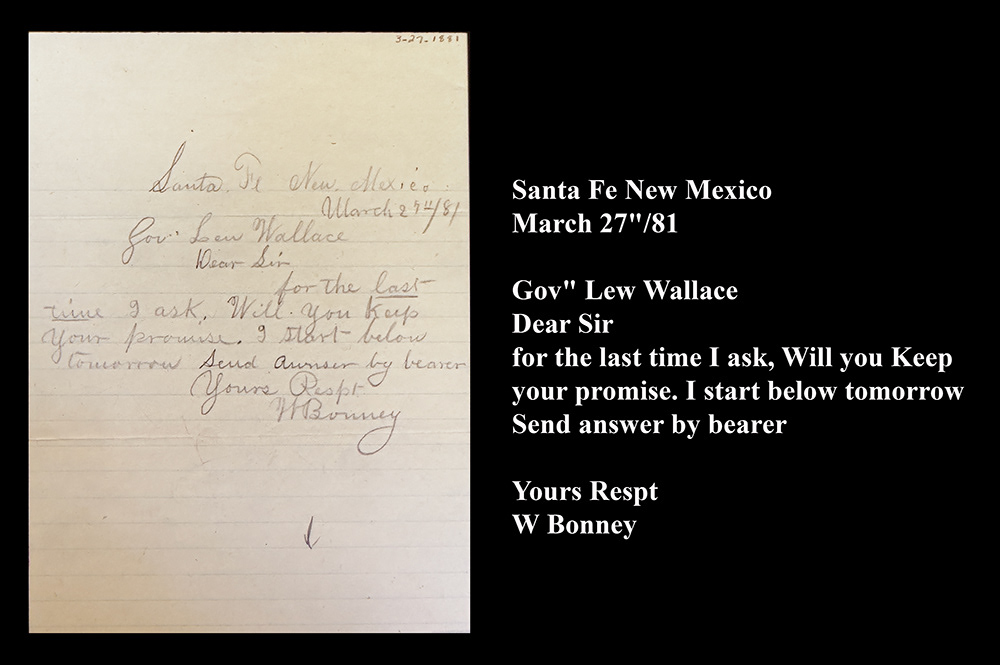 3-27-1881
Santa Fe New Mexico.
March 27"/81
Gov" Lew Wallace
Dear Sir
for the last
time I ask, Will you Keep
Your promise. I start below
tomorrow Send awnser by bearer
Yours Respt
WBonney
Santa Fe New Mexico
March 27"/81
Gov" Lew Wallace
Dear Sir
for the last time I ask, Will you Keep
your promise. I start below tomorrow
Send answer by bearer
Yours Respt
W Bonney